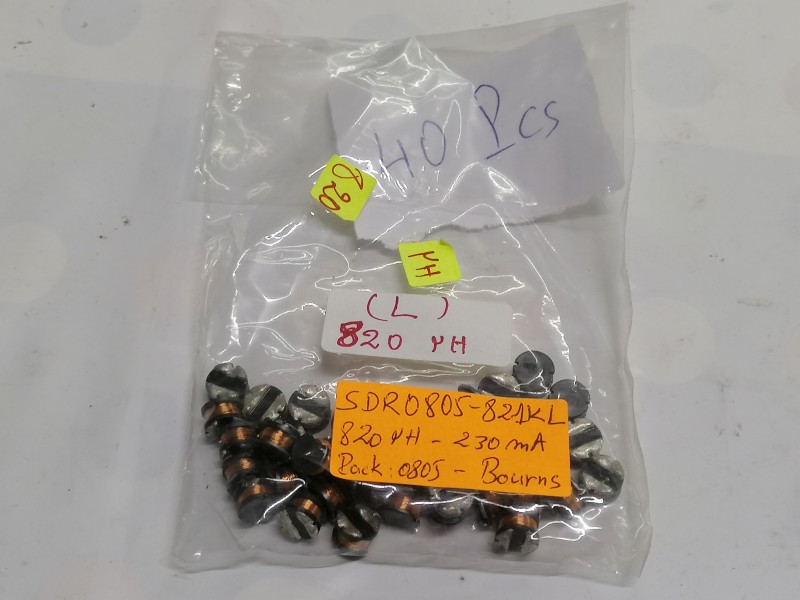 40 Pcs
820
µH
(L)
820 µH
SDR0805-821KL
820 µH - 230 mA
Pack: 0805 - Bourns